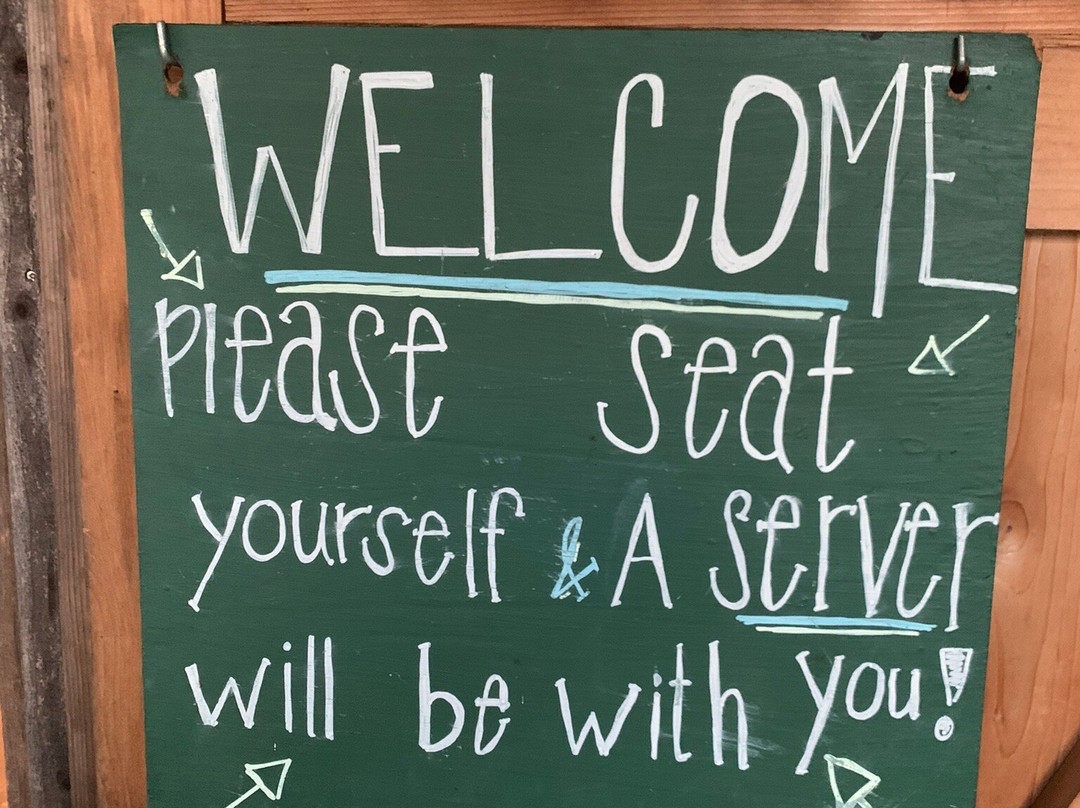 WELCOME
please seat
yourself & A server
will be with you!